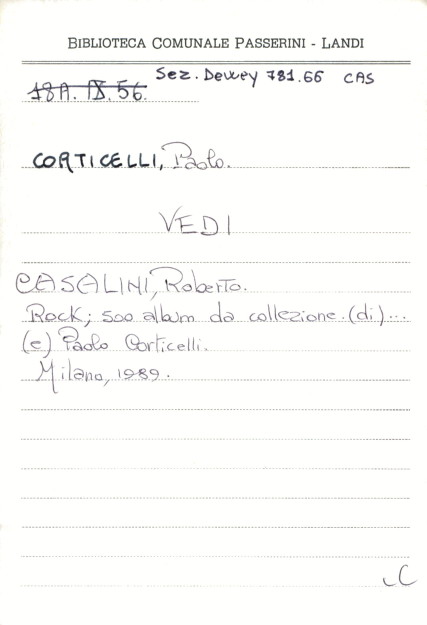 BIBLIOTECA COMUNALE PASSERINI - LANDI
Sez. Dewey 781.66 CAS
18A. IX. 56.
CORTICELLI, Paolo.
VEDI
CASALINI, Roberto.
Rock; 500 album da collezione. (di)...
(e) Paolo Corticelli.
Milano, 1989.